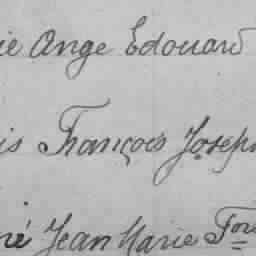 ie Ange Edouard
is François Joseph
né Jean Marie Fois